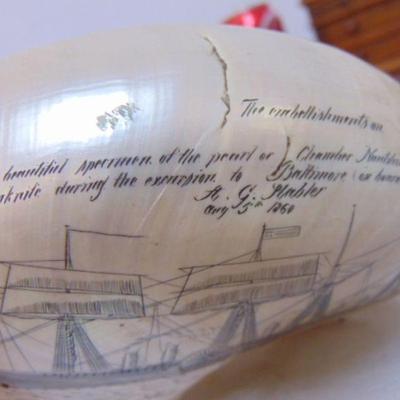 The embellishments on
beautiful specimen of the pearl or Chamber Nautilus
knife during the excursion to Baltimore
A. G. Stabler
Aug 5th 1860